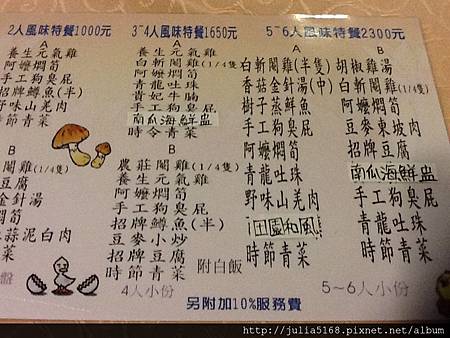 2人風味特餐1000元
A
養生元氣雞
阿嬤燜筍
手工狗臭屁
招牌鱒魚(半)
野味山羌肉
時節青菜
B
閹雞(1/4隻)
豆腐
金針湯
燜筍
蒜泥白肉
時節青菜
3~4人風味特餐1650元
A
養生元氣雞
白斬閹雞(1/4隻)
阿嬤燜筍
青龍吐珠
貴妃牛腩
手工狗臭屁
南瓜海鮮盅
時令青菜
B
農莊閹雞(1/4隻)
養生元氣雞
阿嬤燜筍
手工狗臭屁
招牌鱒魚(半)
豆麥小炒
招牌豆腐
時節青菜
附白飯
4人小份
5~6人風味特餐2300元
A
白斬閹雞(半隻)
香菇金針湯(中)
樹子蒸鮮魚
手工狗臭屁
阿嬤燜筍
青龍吐珠
野味山羌肉
田園和風
時節青菜
B
胡椒雞湯
白斬閹雞(1/4隻)
阿嬤燜筍
豆麥東坡肉
招牌豆腐
南瓜海鮮盅
手工狗臭屁
青龍吐珠
時節青菜
5~6人小份
另附加10%服務費
http://julia5168.pixnet.net/album